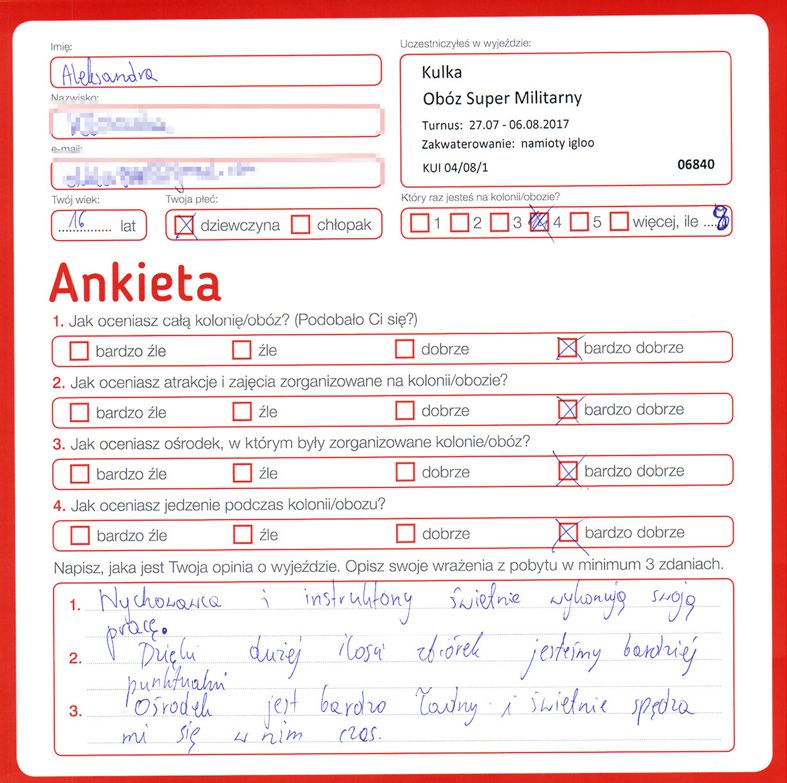 Imię:
Aleksandra
Nazwisko:
e-mail:
Twój wiek:
16 lat
Twoja płeć:
dziewczyna chłopak
Uczestniczyłeś w wyjeździe:
Kulka
Obóz Super Militarny
Turnus: 27.07 - 06.08.2017
Zakwaterowanie: namioty igloo
KUI 04/08/1 06840
Który raz jesteś na kolonii/obozie?
1 2 3 4 5 więcej, ile ....8
Ankieta
1. Jak oceniasz całą kolonię/obóz? (Podobało Ci się?)
bardzo źle źle dobrze bardzo dobrze
2. Jak oceniasz atrakcje i zajęcia zorganizowane na kolonii/obozie?
bardzo źle źle dobrze bardzo dobrze
3. Jak oceniasz ośrodek, w którym były zorganizowane kolonie/obóz?
bardzo źle źle dobrze bardzo dobrze
4. Jak oceniasz jedzenie podczas kolonii/obozu?
bardzo źle źle dobrze bardzo dobrze
Napisz, jaka jest Twoja opinia o wyjeździe. Opisz swoje wrażenia z pobytu w minimum 3 zdaniach.
1. Wychowawca i instruktorzy świetnie wykonują swoją
pracę.
2. Dzięki dużej ilości zbiórek jesteśmy bardziej
punktualni
3. Ośrodek jest bardzo ładny i świetnie spędza
mi się w nim czas.